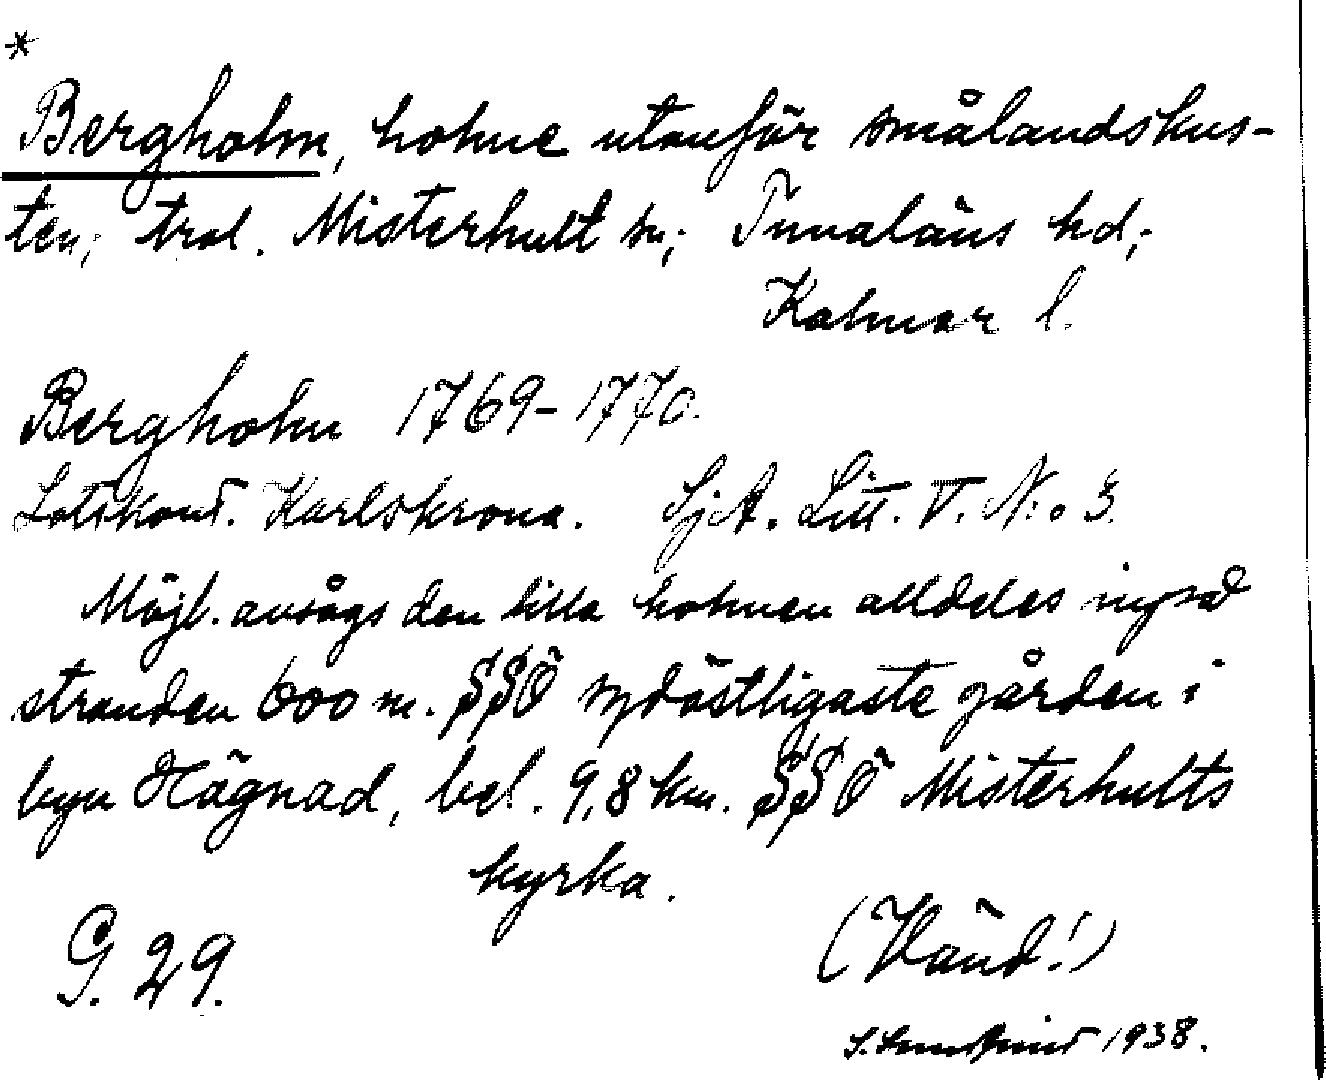 *
Bergholm, holme utanför smålandskus-
ten, trol. Misterhult sn; Tunaläns hd;
Kalmar l.
Bergholm 1769-1770.
Lotskont. Karlskrona. SjA. Litt. V. N:o 3.
Möjl. avsågs den lilla holmen alldeles invid
stranden 600 m. SSÖ sydöstligaste gården i
byn Hägnad, bel. 9,8 km. SSÖ Misterhults
kyrka.
G. 29.
(Vänd!)
S. 1938.